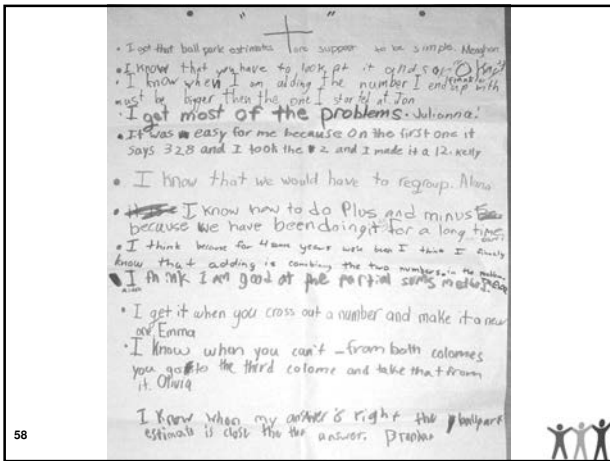 • I get that ball park estimates are support to be simple. Meaghan
• I know that you have to look at it and say "O
• I know when I am adding the number I end up with
must be bigger then the one I started at. Jon
• I get most of the problems. Julianna!
• It was easy for me because on the first one it
says 328 and I took the 2 and I made it a 12. Kelly
• I know that we would have to regroup. Alana
• I know how to do Plus and minus
because we have been doing it for a long time
• I think because for 4 years we've been I think I finally
know that adding is combing the two numbers in the
I think I am good at the partial sums method.
Aidan
• I get it when you cross out a number and make it a new
one Emma
• I know when you can't - from both colomes
you go to the third colome and take that from
it. Olivia
I know when my answer is right the ballpark
estimate is close the the answer.
58